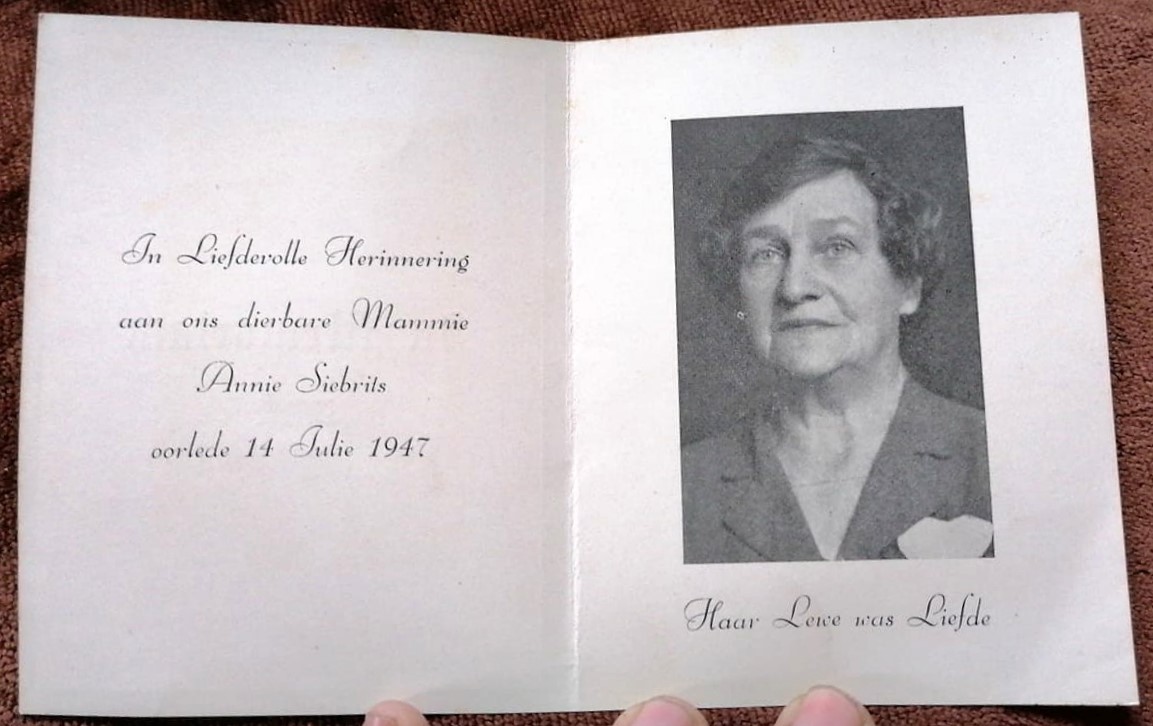 In Liefdevolle Herinnering
aan ons dierbare Mammie
Annie Siebrits
oorlede 14 Julie 1947
Haar Lewe was Liefde